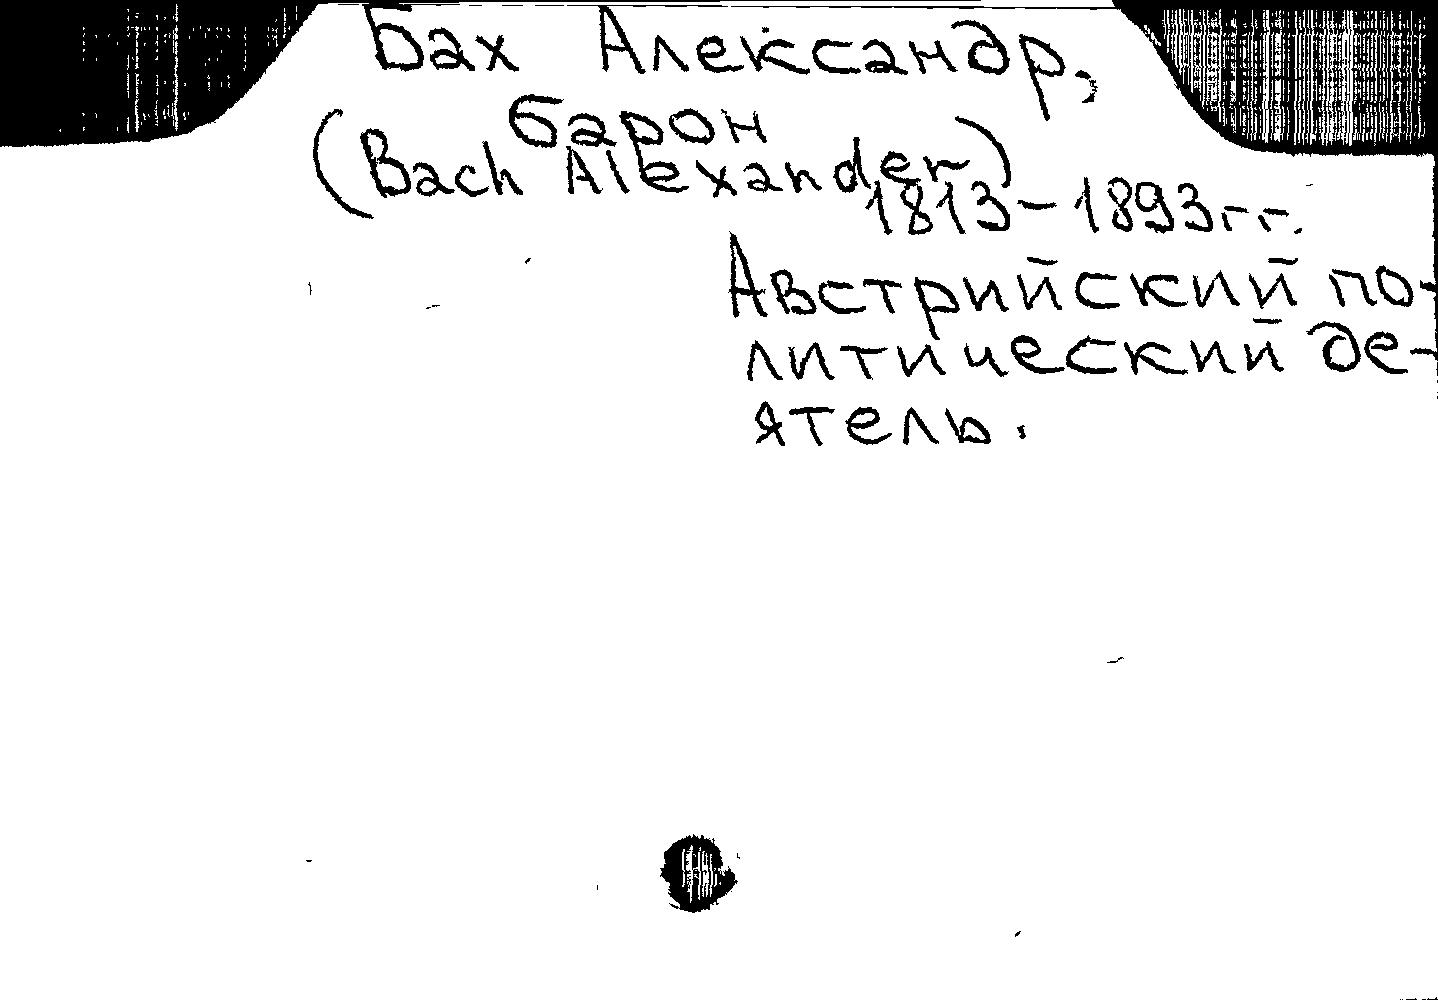 Бах Александр,
барон
(Bach Alexander)
1813-1893гг.
Австрийский по-
литический де-
ятель.